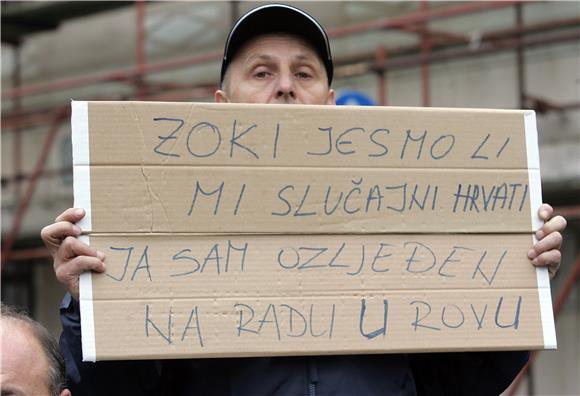 ZOKI JESMO LI
MI SLUČAJNI HRVATI
JA SAM OZLJEĐEN
NA RADU U ROVU